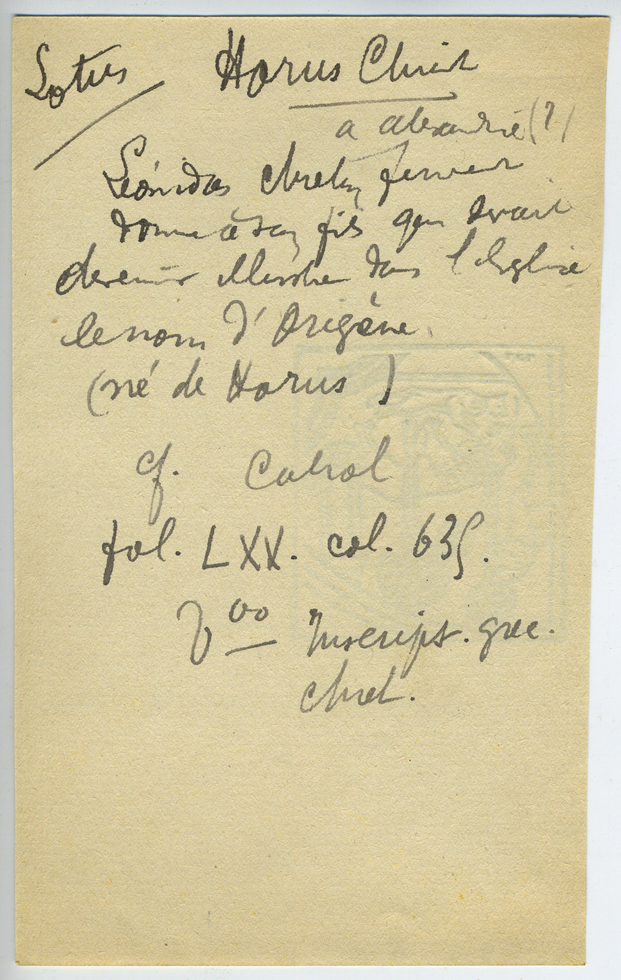 Lotus Horus Christ
a alexandrie (?)
Léonidas chretien fervent
donne à son fils qui devait
devenir illustre dans l'Eglise
le nom d'Origène.
(né de Horus)
cf. Cabrol
fol. LXX. col. 635.
Vᵒᵒ Inscript. grec.
chret.